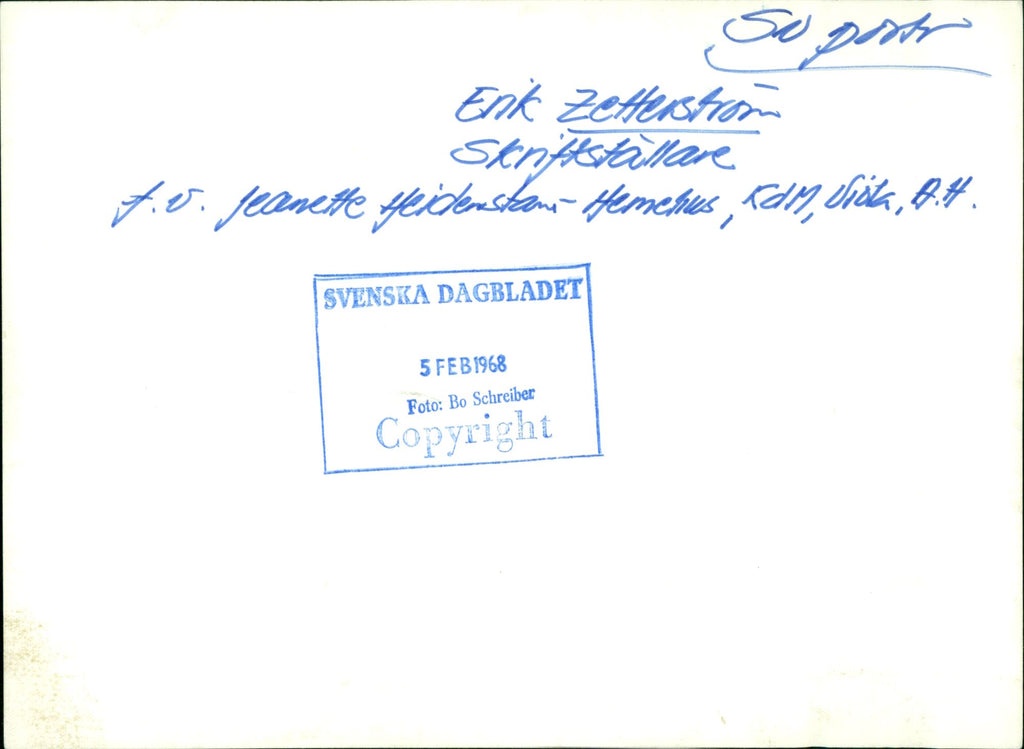 Sv portr
Erik Zetterström
Skriftställare
f.v. Jeanette Heidenstam-Hemelius, KdM, Viola, A.H.
SVENSKA DAGBLADET
5 FEB 1968
Foto: Bo Schreiber
Copyright